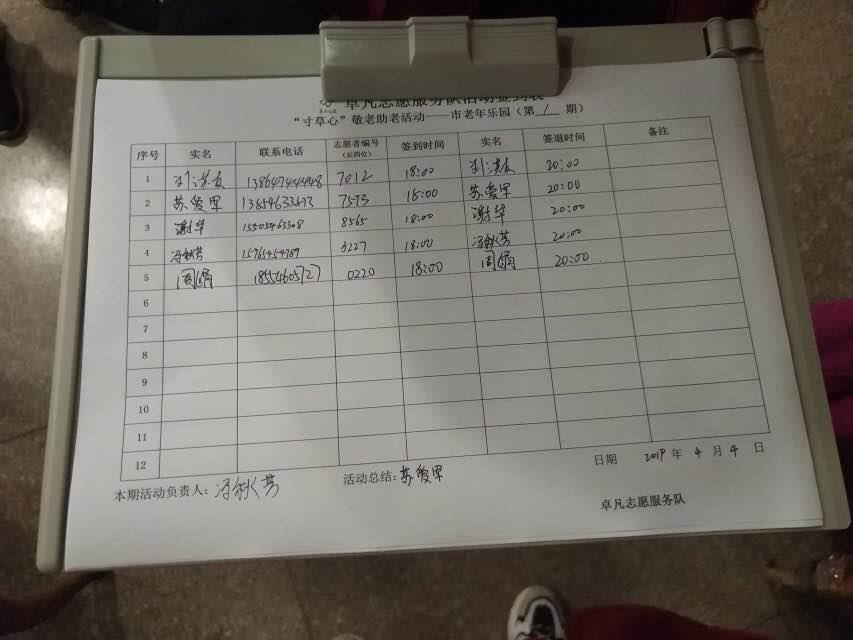 卓凡志愿服务队活动签到表
“寸草心”敬老助老活动——市老年乐园（第 1 期）
序号 实名 联系电话 志愿者编号（后四位） 签到时间 实名 签退时间 备注
1 7012 18:00 20:00
2 苏爱军 7573 18:00 苏爱军 20:00
3 谢华 15505463308 8565 18:00 谢华 20:00
4 冯秋芳 15765454789 3227 18:00 冯秋芳 20:00
5 周娟 18554605727 0220 18:00 周娟 20:00
6
7
8
9
10
11
12
日期 2019 年 4 月 4 日
本期活动负责人：冯秋芳 活动总结：苏爱军
卓凡志愿服务队